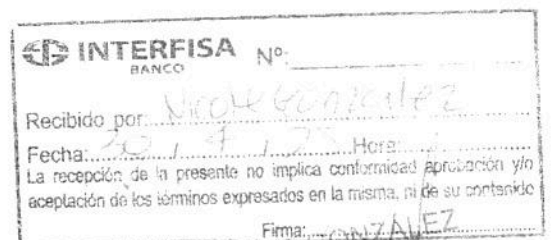 INTERFISA Nº:
BANCO
Recibido por: Nicole Gonzalez
Fecha: 30 / 4 / Hora:
La recepción de la presente no implica conformidad aprobación y/o
aceptación de los términos expresados en la misma, ni de su contenido
Firma: GONZALEZ